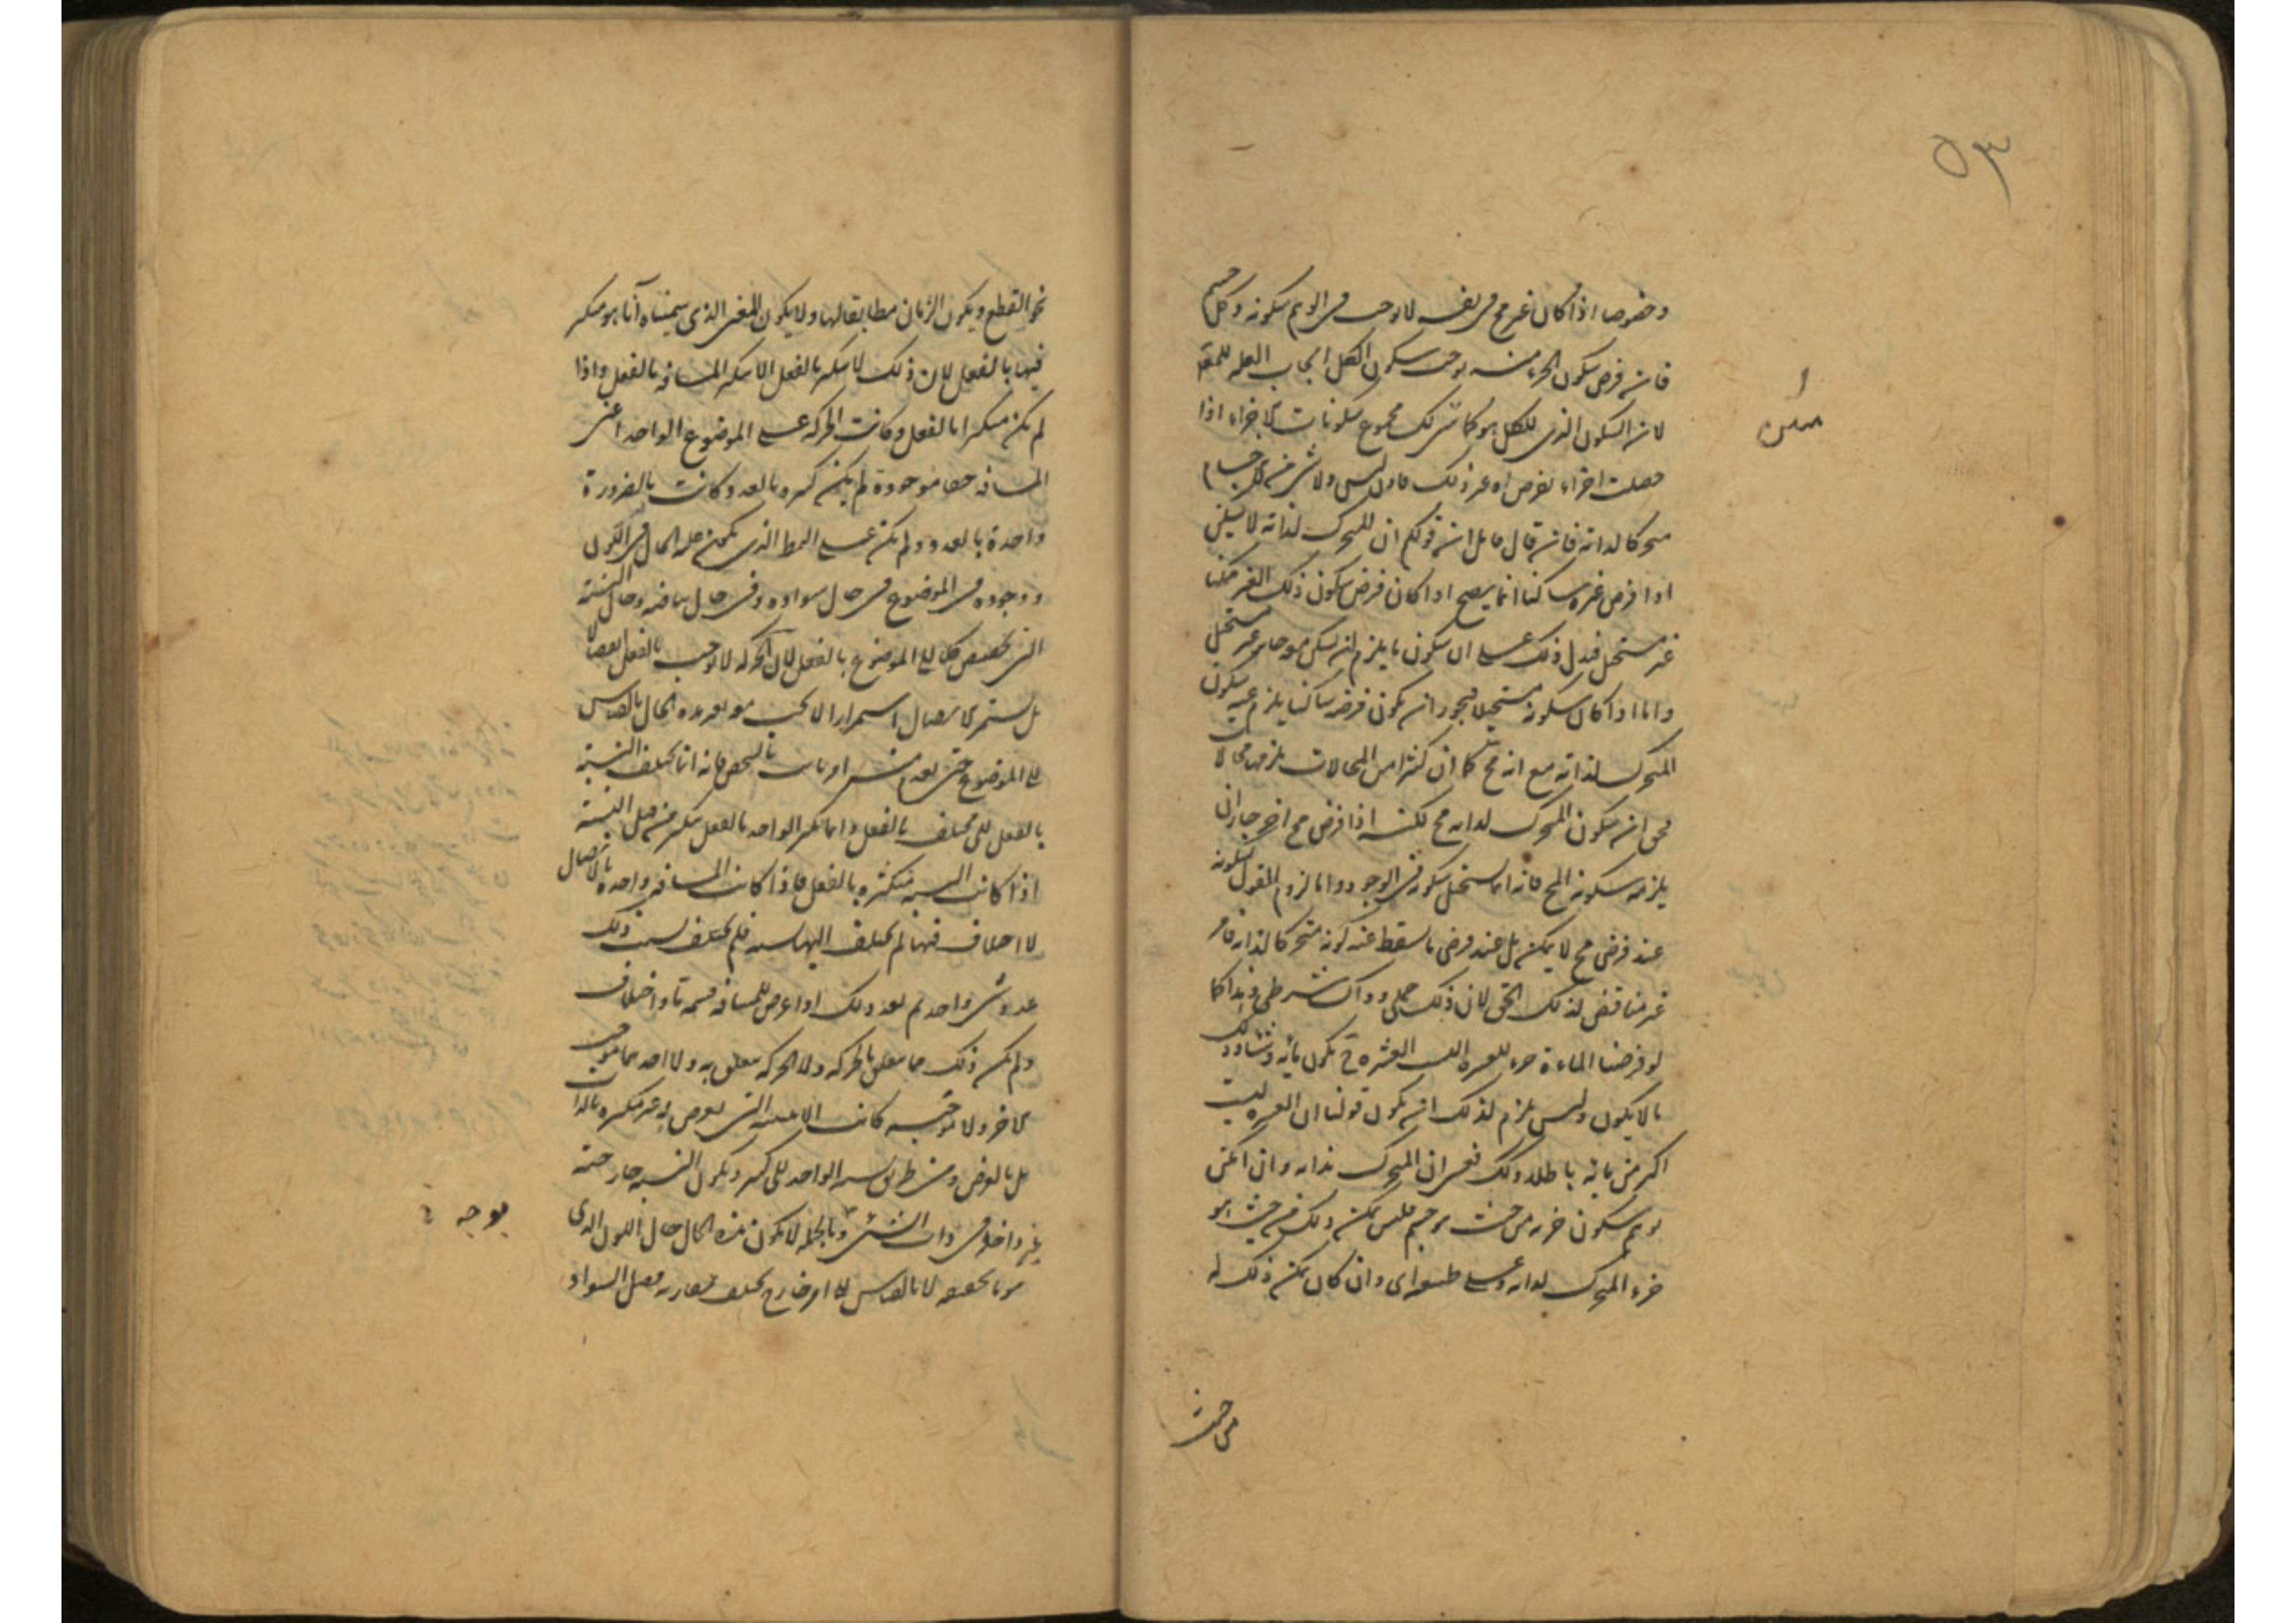 ٥٣
وخصوصا اذا كان غير مح فى نفسه لا يوجب فى الوهم سكونه وكل جسم
فان فرض سكون الجزء منه يوجب سكون الكل ايجاب العلة للمعلول
لان السكون الذى للكل هو كما تبين لك مجموع سكونات الاجزاء اذا
حصلت اجزاء بفرض او غير ذلك فاذن ليس ولا شئ من الاجسام
متحركا لذاته فان قال قائل ان قولكم ان المتحرك لذاته لا يسكن
اذا فرض غيره ساكنا انما يصح اذا كان فرض سكون ذلك الغير ممكنا
غير مستحيل فيدل ذلك على ان سكون ما يلزم ان يسكن معه جائز غير مستحيل
واما اذا كان سكونه مستحيلا فيجوز ان يكون فرضه ساكنا يلزم عنه سكون
المتحرك لذاته مع انه مح كما ان كثيرا من المحالات يلزمها محالات
فحق ان سكون المتحرك لذاته مح لكنه اذا فرض مح اخر جاز ان
يلزمه سكونه المح فانه انما يستحيل سكونه فى الوجود واما لزوم القول بسكونه
عند فرض مح لا يمكن بل عند فرض ما يسقط عنه كونه متحركا لذاته فامر
غير مناقض لذلك الحق لان ذلك حملى وذاك شرطى وهذا كما
لو فرضنا الماءة جزء للعشرة اليست العشرة ح تكون ماية وتشاوذلك
ما لا يكون وليس يلزم لذلك ان يكون قولنا ان العشرة ليست
اكثر من ماية باطلا وكذلك فعسى ان المتحرك بذاته وان امكن
توهم سكون جزئه من حيث هو جسم فليس يمكن ذلك من حيث هو
جزء المتحرك لذاته وعلى طبيعته اى وان كان يمكن ذلك له
من حيث
نحو القطع ويكون الزمان مطابقا لها ولا يكون المعنى الذى سميناه آنا هو متكثر
فيها بالفعل لان ذلك لا يتكثر بالفعل الا بتكثر المسافة بالفعل واذا
لم يكن متكثرا بالفعل وكانت الحركة على الموضوع الواحد اعنى
المسافة حقا موجودة لم يكن كثيرة بالعدد وكانت بالضرورة
واحدة بالعدد ولم يكن على النمط الذى يكون عليه الحال فى اللون
ووجوده فى الموضوع فى حال سواده وفى حال بياضه وحال النسبة
التى تخصص كلا الى الموضوع بالفعل لان الحركة لا توجب بالفعل انفصالا
بل يستمر الاتصال استمرارا لا يجب معه تغير هذه الحال بالقياس
الى الموضوع حتى يعدم منه امر ثابت بالشخص فانه انما تختلف النسبة
بالفعل الى مختلف بالفعل وانما يتكثر الواحد بالفعل بتكثر من قبل النسبة
اذا كانت النسبة متكثرة بالفعل فاذا كانت المسافة واحدة بالاتصال
لا اختلاف فيها لم يختلف اليها نسبة فلم يختلف بسبب ذلك
عدد شئ واحد ثم بعد ذلك اذا عرض للمسافة قسمة ما واختلاف
ولم يكن ذلك مما يتعلق بالحركة ولا الحركة يتعلق به ولا احدهما موجب
للاخر ولا موجبه كانت الاثنينية التى تعرض له غير متكثرة بالذات
بل بالعرض ومن طريق نسبة الواحد الى كثير ويكون النسبة خارجية
غير داخلة فى ذات الشئ وبالجملة لا يكون هذه الحال حال اللون الذى
هو بالحقيقة لا بالقياس الى امر خارج يختلف مقارنه فصل السواد
بوجه